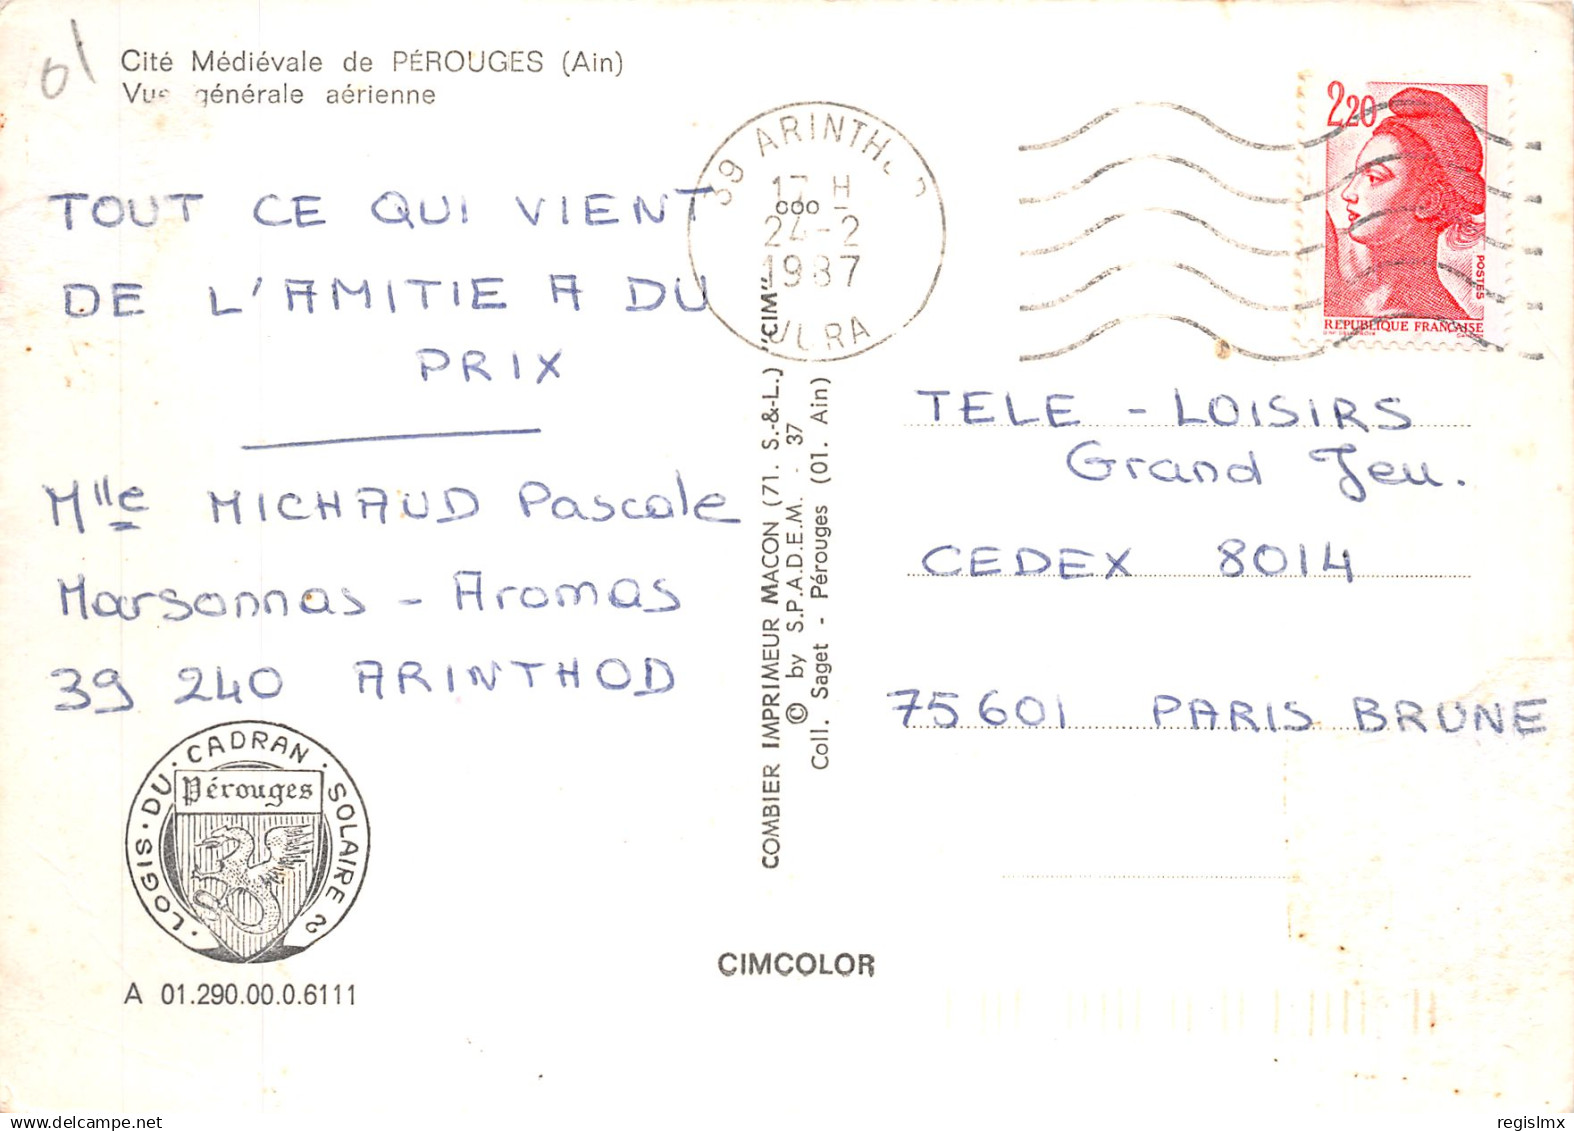 01
Cité Médiévale de PÉROUGES (Ain)
Vue générale aérienne
TOUT CE QUI VIENT
DE L'AMITIE A DU
PRIX
Mlle MICHAUD Pascale
Marsonnas - Aromas
39 240 ARINTHOD
LOGIS · DU · CADRAN · SOLAIRE
Pérouges
A 01.290.00.0.6111
39 ARINTHOD
17 H
24-2
1987
JURA
COMBIER IMPRIMEUR MACON (71. S.-&-L.) "CIM"
© by S.P.A.D.E.M. - 37
Coll. Saget - Pérouges (01. Ain)
CIMCOLOR
2,20
POSTES
REPUBLIQUE FRANÇAISE
TELE - LOISIRS
Grand Jeu.
CEDEX 8014
75601 PARIS BRUNE
regislmx